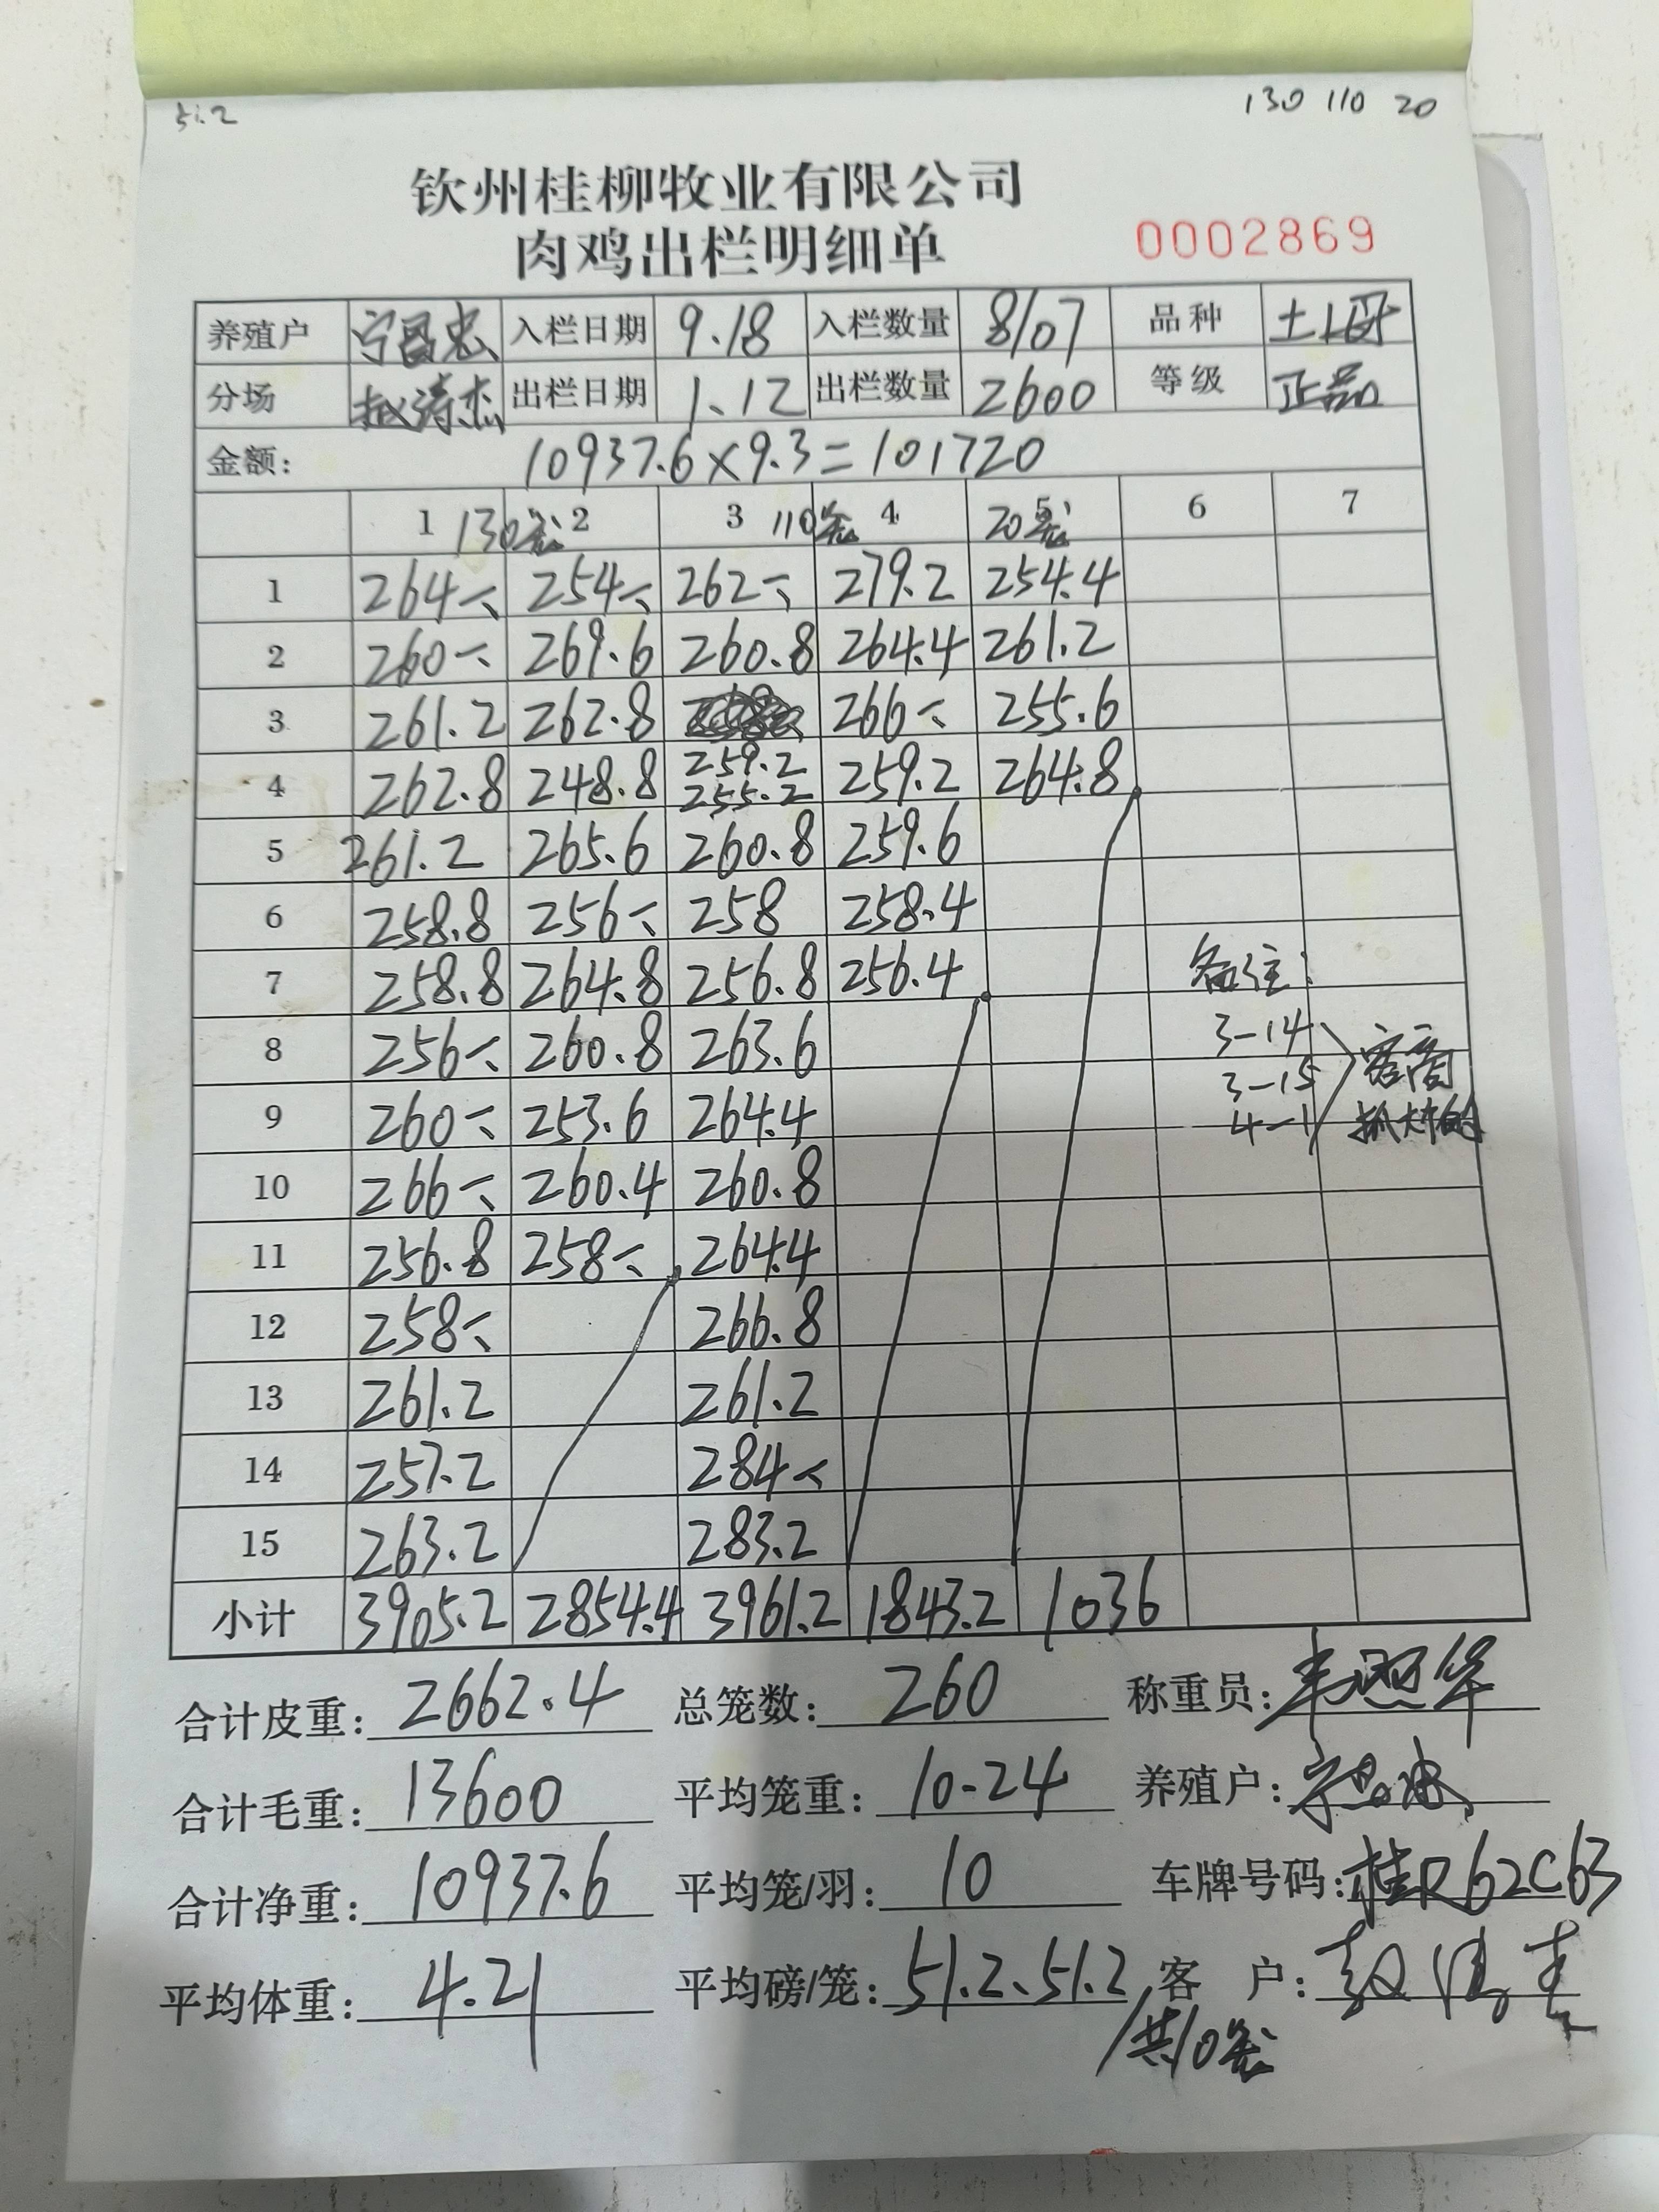 51.2
130 110 20
钦州桂柳牧业有限公司
肉鸡出栏明细单 0002869
养殖户 宁昌忠 入栏日期 9.18 入栏数量 8107 品种 土
分场 赵涛杰 出栏日期 1.12 出栏数量 2600 等级 正品
金额: 10937.6×9.3=101720
1 130笼 2 3 110笼 4 20笼 5 6 7
1 264.- 254.- 262.- 279.2 254.4
2 260.- 269.6 260.8 264.4 261.2
3 261.2 262.8 266.- 255.6
4 262.8 248.8 259.2 255.2 259.2 264.8
5 261.2 265.6 260.8 259.6
6 258.8 256.- 258 258.4
7 258.8 264.8 256.8 256.4 备注:
8 256.- 260.8 263.6 3-14 客商
3-15
9 260.- 253.6 264.4 4-1 抓大的
10 266.- 260.4 260.8
11 256.8 258.- 264.4
12 258.- 266.8
13 261.2 261.2
14 257.2 284.-
15 263.2 283.2
小计 3905.2 2854.4 3961.2 1843.2 1036
合计皮重: 2662.4 总笼数: 260 称重员: 韦照华
合计毛重: 13600 平均笼重: 10-24 养殖户: 宁昌忠
合计净重: 10937.6 平均笼/羽: 10 车牌号码: 桂R62C63
平均体重: 4.21 平均磅/笼: 51.2、51.2 客 户:
/共10笼